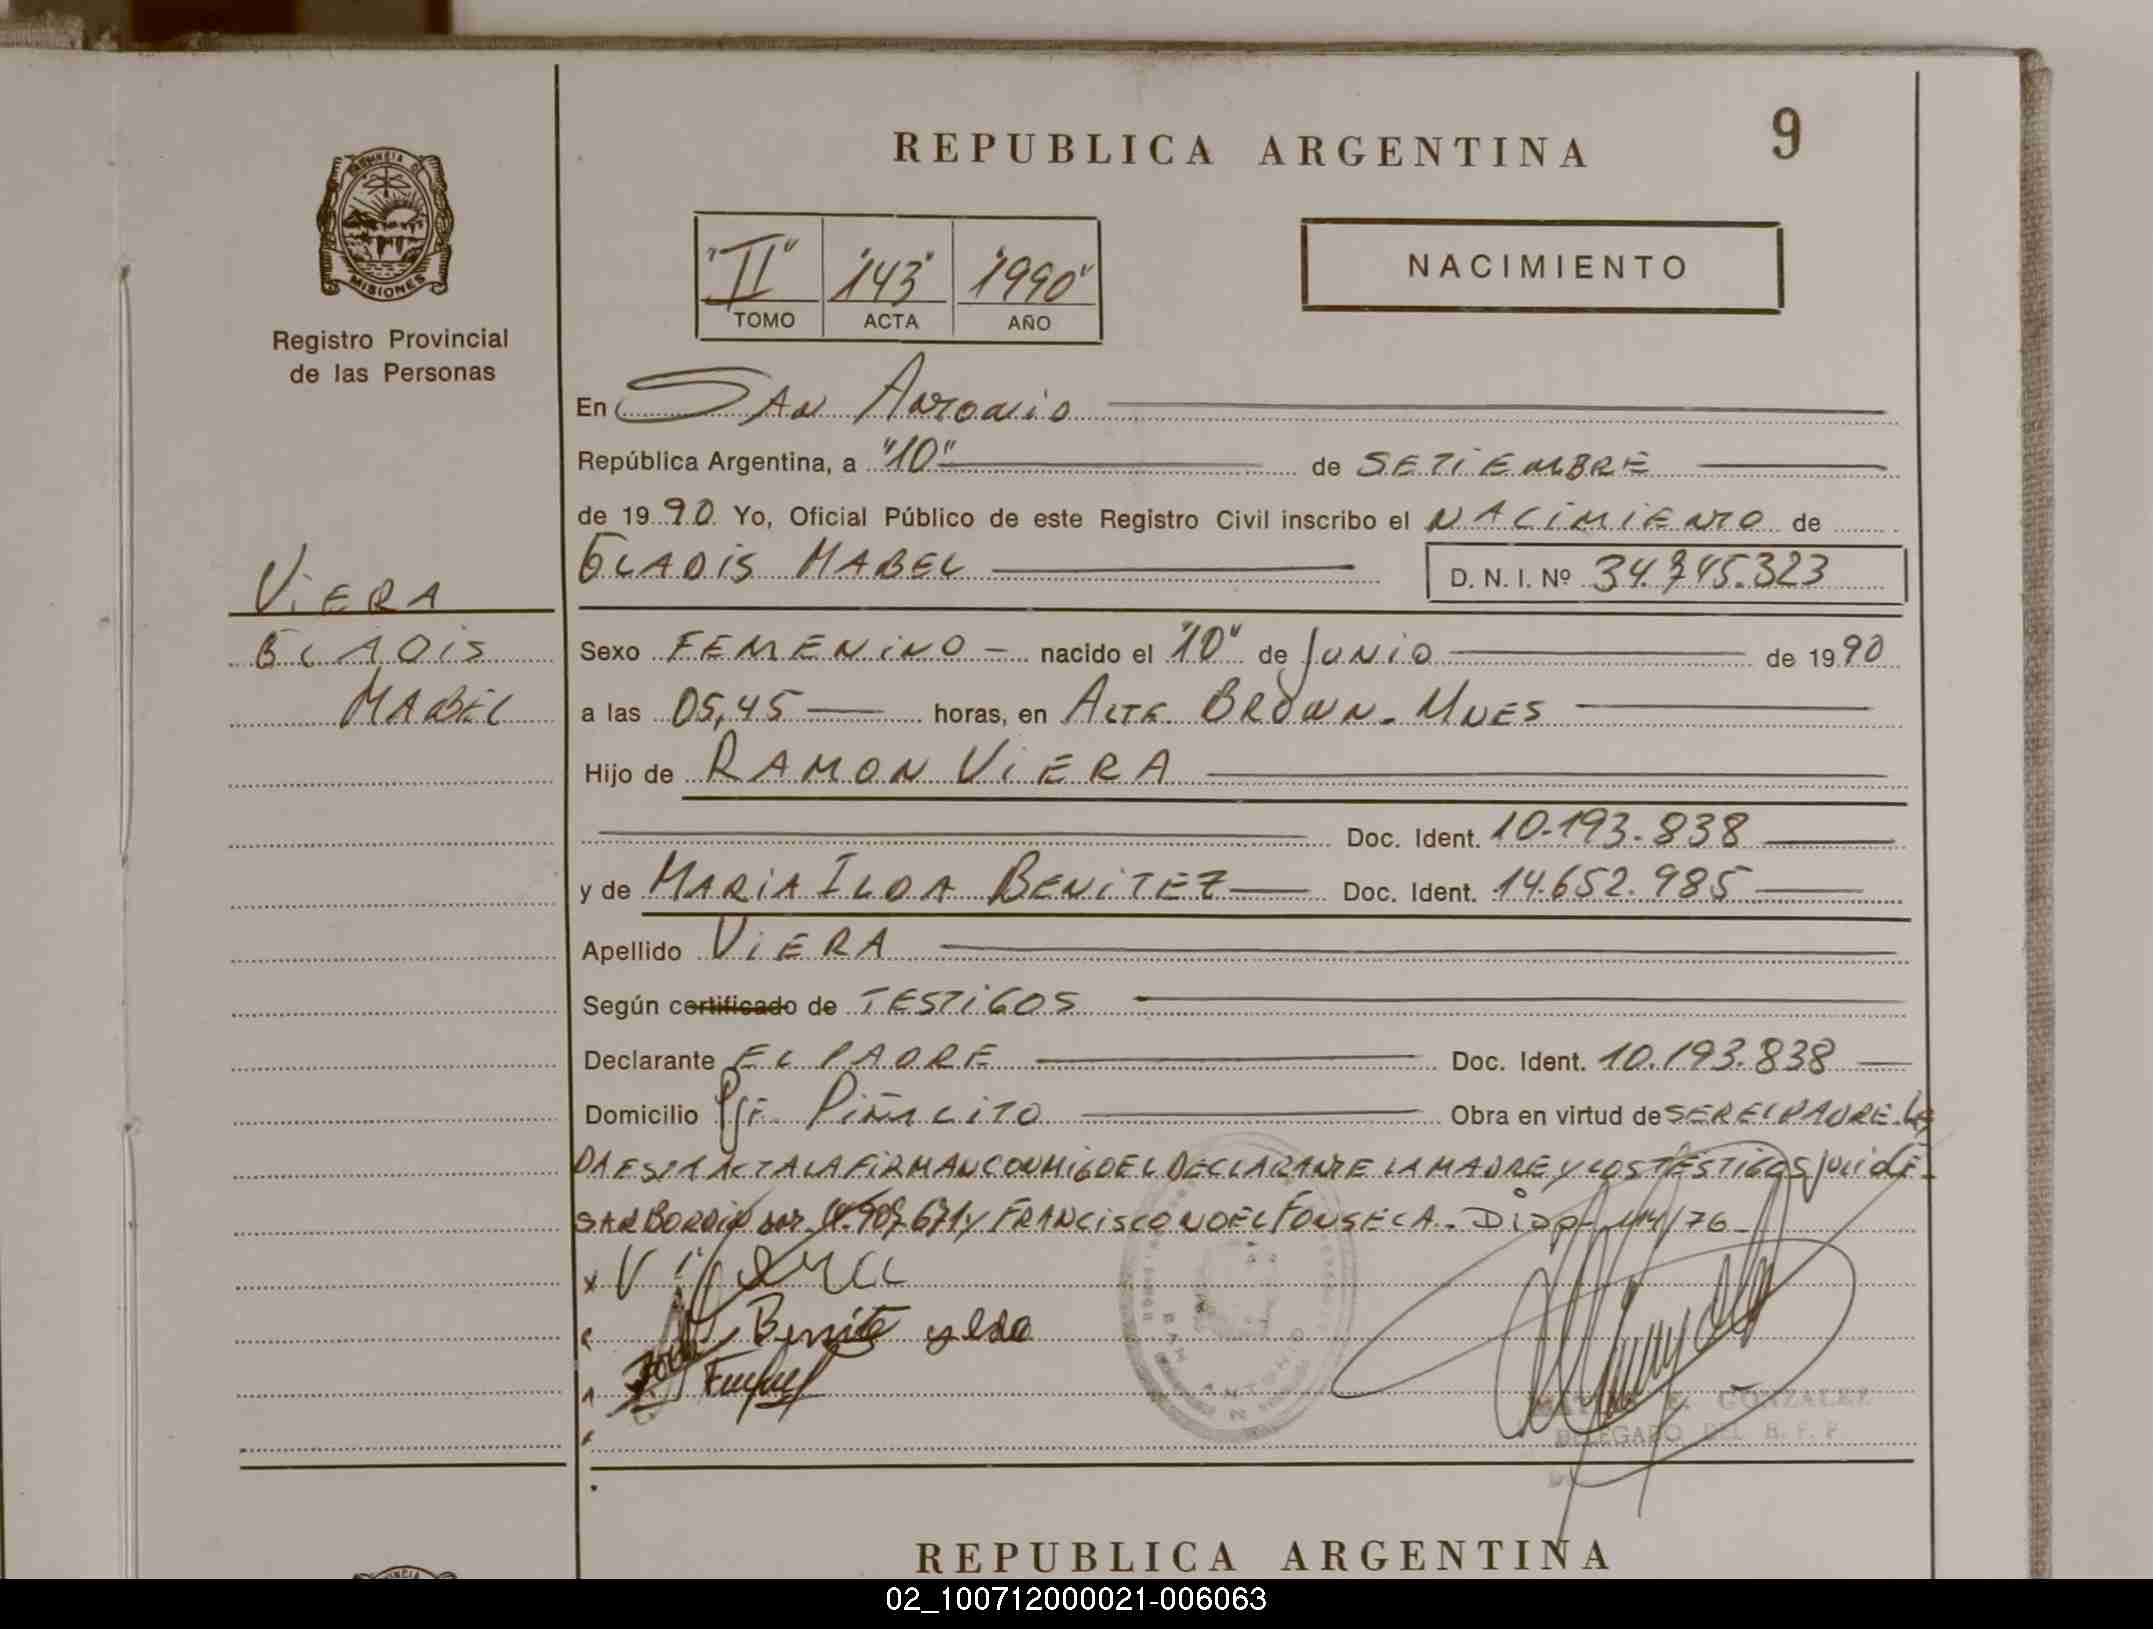 REPUBLICA ARGENTINA
9
PROVINCIA DE
MISIONES
Registro Provincial
de las Personas
"II" "143" "1990"
TOMO ACTA AÑO
NACIMIENTO
En SAN ANTONIO
República Argentina, a "10" de SETIEMBRE
de 1990 Yo, Oficial Público de este Registro Civil inscribo el NACIMIENTO de
GLADIS MABEL D. N. I. Nº 34.745.323
VIERA
GLADIS
MABEL
Sexo FEMENINO nacido el "10" de JUNIO de 1990
a las 05,45 horas, en ALTE. BROWN. MNES
Hijo de RAMON VIERA
Doc. Ident. 10.193.838
y de MARIA ILDA BENITEZ Doc. Ident. 14.652.985
Apellido VIERA
Según certificado de TESTIGOS
Declarante EL PADRE Doc. Ident. 10.193.838
Domicilio PJE. PIÑALITO Obra en virtud de SER EL PADRE. LEI
DA ESTA ACTA LA FIRMAN CONMIGO EL DECLARANTE LA MADRE Y LOS TESTIGOS
FRANCISCO NOEL FONSECA.
Benite ylda
GONZALEZ
DELEGADO DEL R. P. P.
SAN ANTONIO
REPUBLICA ARGENTINA
02_100712000021-006063